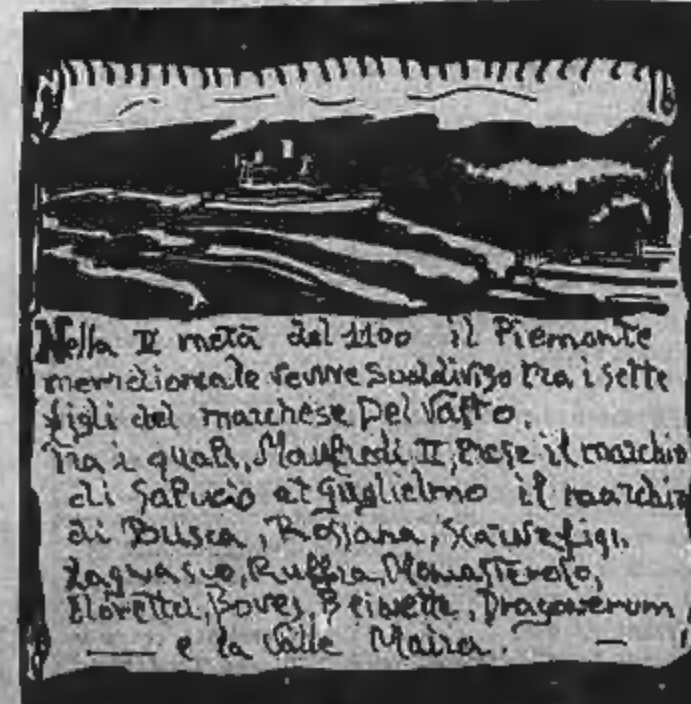 Nella II metà del 1100 il Piemonte
meridionale venne suddiviso tra i sette
figli del marchese Del Vasto.
Tra i quali, Manfredi II, prese il marchio
di Saluzio et Guglielmo il marchio
di Busca, Rossana, Scarnefigi,
Lagnasco, Ruffia, Monasterolo,
Boves, Beinette, Dragonerum
e la Valle Maira.